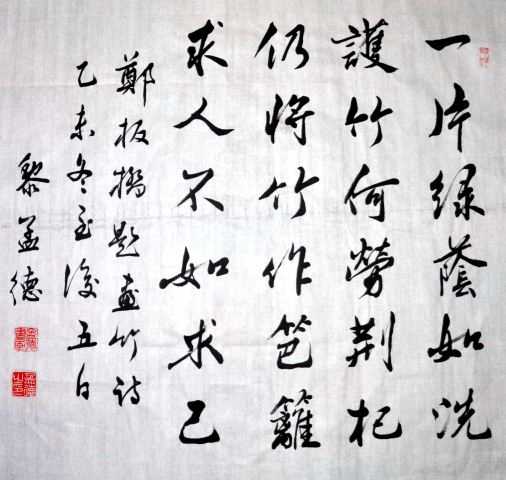 一片绿蔭如洗
護竹何勞荆杞
仍将竹作笆籬
求人不如求己
鄭板橋题畫竹诗
乙未冬至後五日
黎孟德